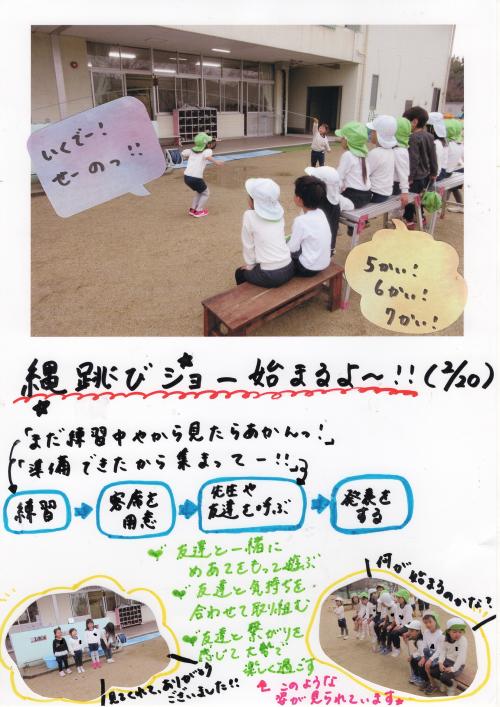 いくでー！
せーのっ！！
5かい！
6かい！
7かい！
縄跳びショー始まるよ～！！（2/20）
「まだ練習中やから見たらあかんっ！」
「準備できたから集まってー！！」
練習
客席を
用意
先生や
友達を呼ぶ
発表を
する
友達と一緒に
めあてをもって遊ぶ
友達と気持ちを
合わせて取り組む
友達と繋がりを
感じて大勢で
楽しく過ごす
このような
姿が見られています
何が始まるのかな？
見てくれて、ありがとう
ございました！！